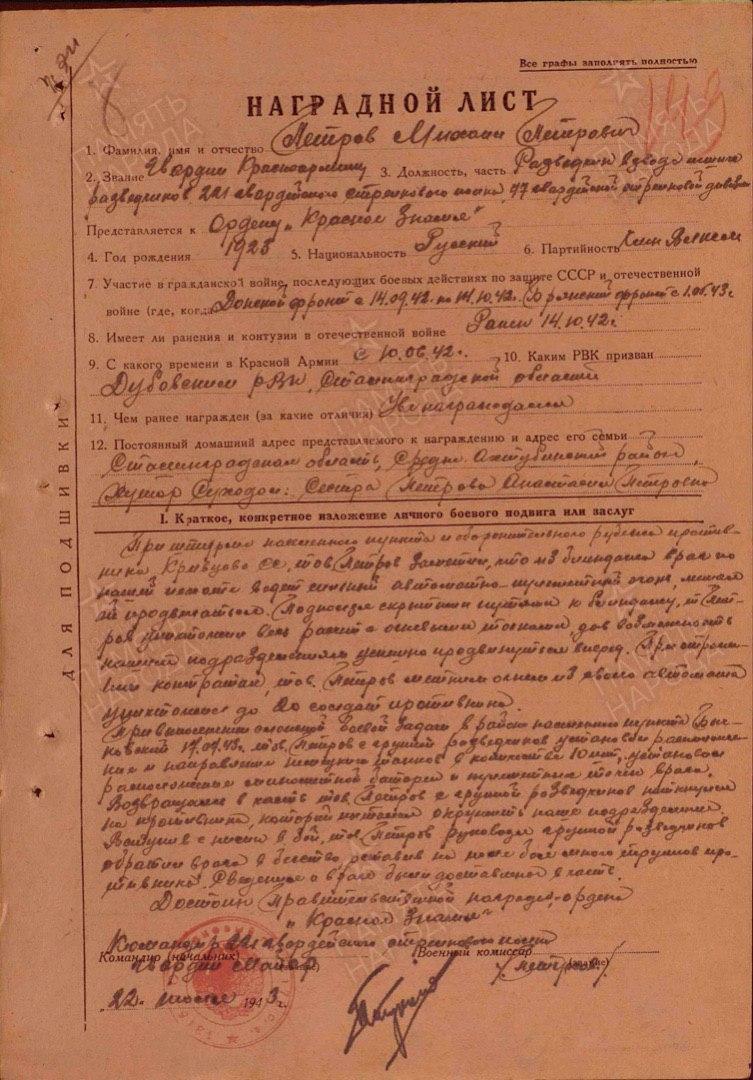 Все графы заполнять полностью
НАГРАДНОЙ ЛИСТ
1. Фамилия, имя и отчество Петров Михаил Петрович
2. Звание Гвардии Красноармеец 3. Должность, часть Разведчик взвода пеших
разведчиков 221 гвардейского стрелкового полка 77 гвардейской стрелковой дивизии
Представляется к Ордену „Красное Знамя“
4. Год рождения 1925 5. Национальность Русский 6. Партийность Член ВЛКСМ
7. Участие в гражданской войне, последующих боевых действиях по защите СССР и отечественной
войне (где, когда) Донской фронт с 14.09.42. по 14.10.42г. Брянский фронт с 1.06.43г.
8. Имеет ли ранения и контузии в отечественной войне Ранен 14.10.42г.
9. С какого времени в Красной Армии с 10.06.42г. 10. Каким РВК призван
Дубовским РВК, Сталинградской области
11. Чем ранее награжден (за какие отличия) Не награждался
12. Постоянный домашний адрес представляемого к награждению и адрес его семьи
Сталинградская область, Средне Ахтубинский район
Хутор Суходол: Сестра Петрова Анастасия Петровна
I. Краткое, конкретное изложение личного боевого подвига или заслуг
При штурме населенного пункта и оборонительного рубежа против-
ника Кривцово тов. Петров заметил, что из блиндажа враг по
нашей пехоте ведет сильный автоматно-пулеметный огонь, мешая
ей продвигаться. Подползя скрытыми путями к блиндажу, т. Пет-
ров уничтожил весь расчет с огневыми точками, дав возможность
нашим подразделениям успешно продвинуться вперед. При отраже-
нии контратак, тов. Петров метким огнем из своего автомата
уничтожил до 20 солдат противника.
При выполнении боевой задачи в районе населенного пункта
17.07.43г. тов. Петров с группой разведчиков установил расположе-
ние и направление немецких танков в количестве 10 шт, установил
расположение минометной батареи и пулеметные точки врага.
Возвращаясь в часть тов. Петров с группой разведчиков наткнулся
на противника, который пытался окружить наше подразделение.
Вступив с ними в бой, тов. Петров руководя группой разведчиков
обратил врага в бегство оставив на поле боя много трупов про-
тивника. Сведения о враге были доставлены в часть.
Достоин правительственной награды-ордена
„Красное Знамя“
Командир 221 гвардейского стрелкового полка
Командир (начальник) Военный комиссар
Гвардии Майор (звание)
„22„ июля 1943г.
ДЛЯ ПОДШИВКИ
ПАМЯТЬ НАРОДА